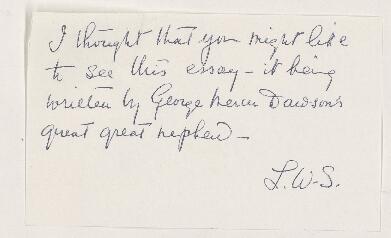 I thought that you might like
to see this essay - it being
written by George Mercer Dawson's
great great nephew -
L.W-S.